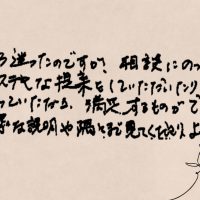 ろ迷ったのですが、相談にのっ
ステキな提案をしていただいたり
っていただき、満足するものがで
寧な説明や隅々まで見てくださり よ